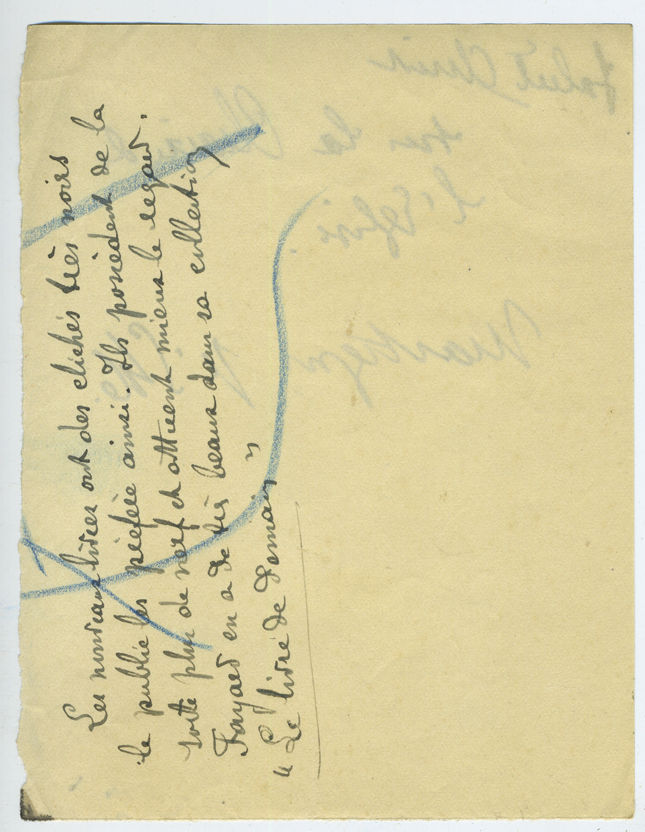 Les nouveaux livres ont des clichés très noirs
le public les préfère ainsi. Ils possèdent de la
sorte plus de nerf et attirent mieux le regard.
Fayard en a de très beaux dans sa collection
" Le livre de Demain "
sur la
l'Eglise.